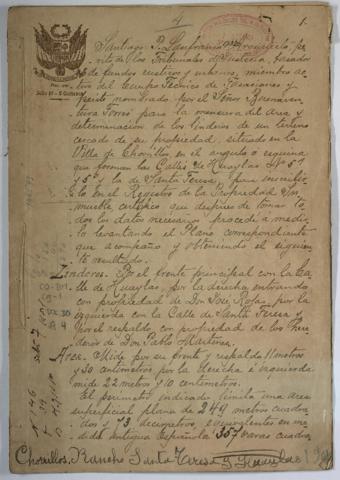 4
1
Santiago P. Lanfranco, Arquitecto, pe-
rito de los Tribunales de Justicia, tasador
de fundos rusticos y urbanos, miembro ac-
tivo del Cuerpo Técnico de Tasaciones y
Perito nombrado por el Señor Buenaven-
tura Torres para la mensura del area y
determinación de los linderos de un terreno
cercado de su propiedad, situado en la
Villa de Chorrillos en el angulo o esquina
que forman las Calles de Huaylas
y la de Santa Teresa, para inscribir-
lo en el Registro de la Propiedad In-
mueble certifico que despues de tomar to-
dos los datos necesarios procedi á medir-
lo levantando el Plano correspondiente
que acompaño y obteniendo el siguien-
te resultado.
Linderos. Por el frente principal con la Ca-
lle de Huaylas, por la derecha, entrando
con propiedad de Don José Rojas, por la
izquierda con la Calle de Santa Teresa y
por el respaldo, con propiedad de los here-
deros de Don Pablo Martinez.
Area. Mide por su frente y respaldo 11 metros
y 30 centimetros por la derecha é izquierda
mide 22 metros y 10 centimetros.
El perimetro indicado limita una area
superficial plana de 249 metros cuadra-
dos y 73 decimetros, equivalentes en me-
dida antigua Española 357 varas cuadra-
Chorrillos, Rancho Santa Teresa y Huaylas